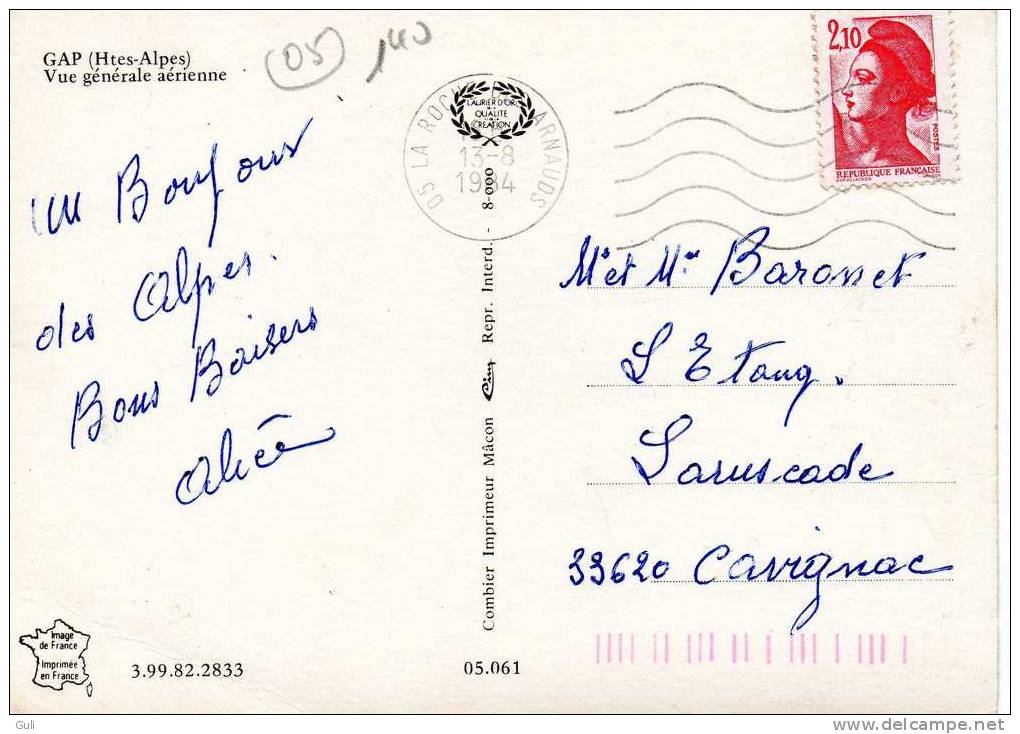 GAP (Htes-Alpes)
Vue générale aérienne
05
140
Un Bonjour
des Alpes.
Bons Baisers
Alice
Image
de France
Imprimée
en France
3.99.82.2833
05.061
Combier Imprimeur Mâcon Cim Repr. Interd. - 8-000
LAURIER D'OR
QUALITE
CREATION
05 LA ROCHE ARNAUDS
13-8
1984
2,10
POSTES
REPUBLIQUE FRANÇAISE
Mr et Mme Baronnet
L Etang.
Laruscade
33620 Cavignac
Guli
delcampe.net